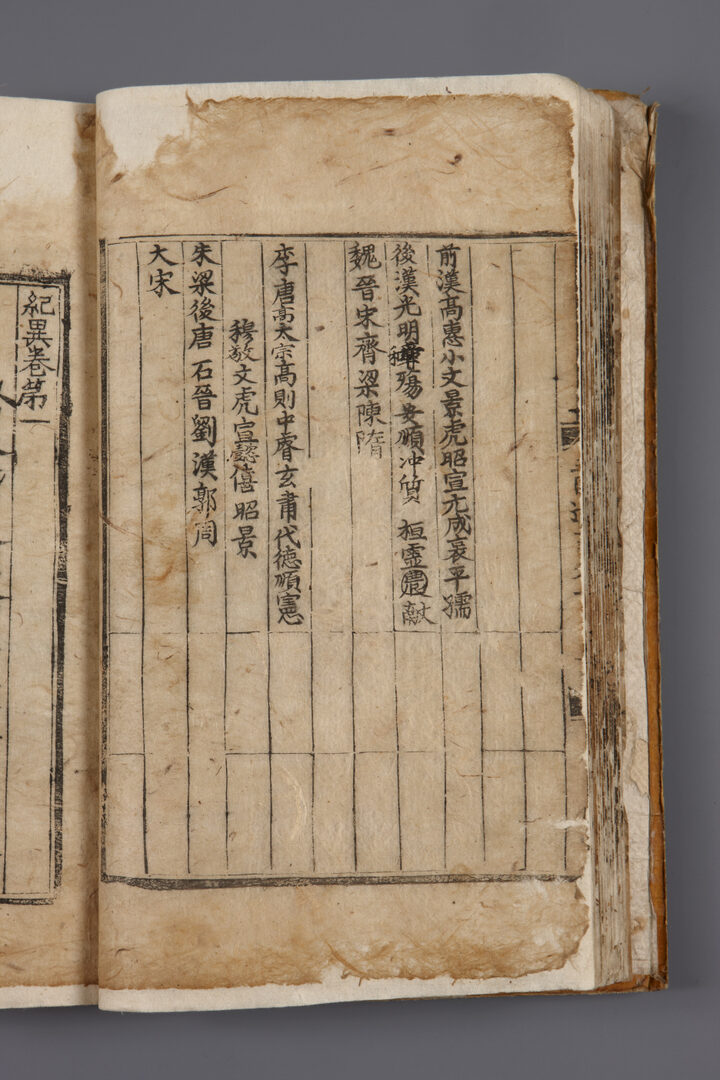 前漢高惠小文景虎昭宣元成哀平孺
後漢光明章和殤安順冲質 桓靈農獻
魏晉宋齊梁陳隋
李唐高太宗高則中睿玄肅代德順憲
穆敬文虎宣懿僖昭景
朱梁後唐 石晉劉漢郭周
大宋
紀異卷第一